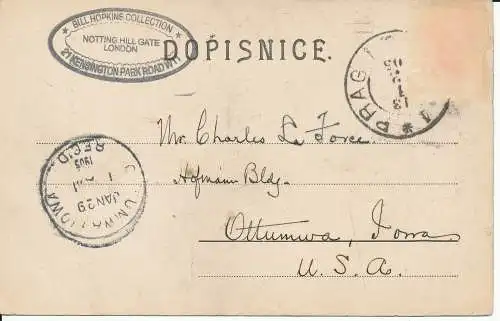 BILL HOPKINS COLLECTION
NOTTING HILL GATE
LONDON
21 KENSINGTON PARK ROAD W11
DOPISNICE.
PRAG 1
Mr. Charles La Force
Hofmann Bldg.
Ottumwa, Iowa
U.S.A.
OTTUMWA, IOWA
JAN 29
1905
REC'D.